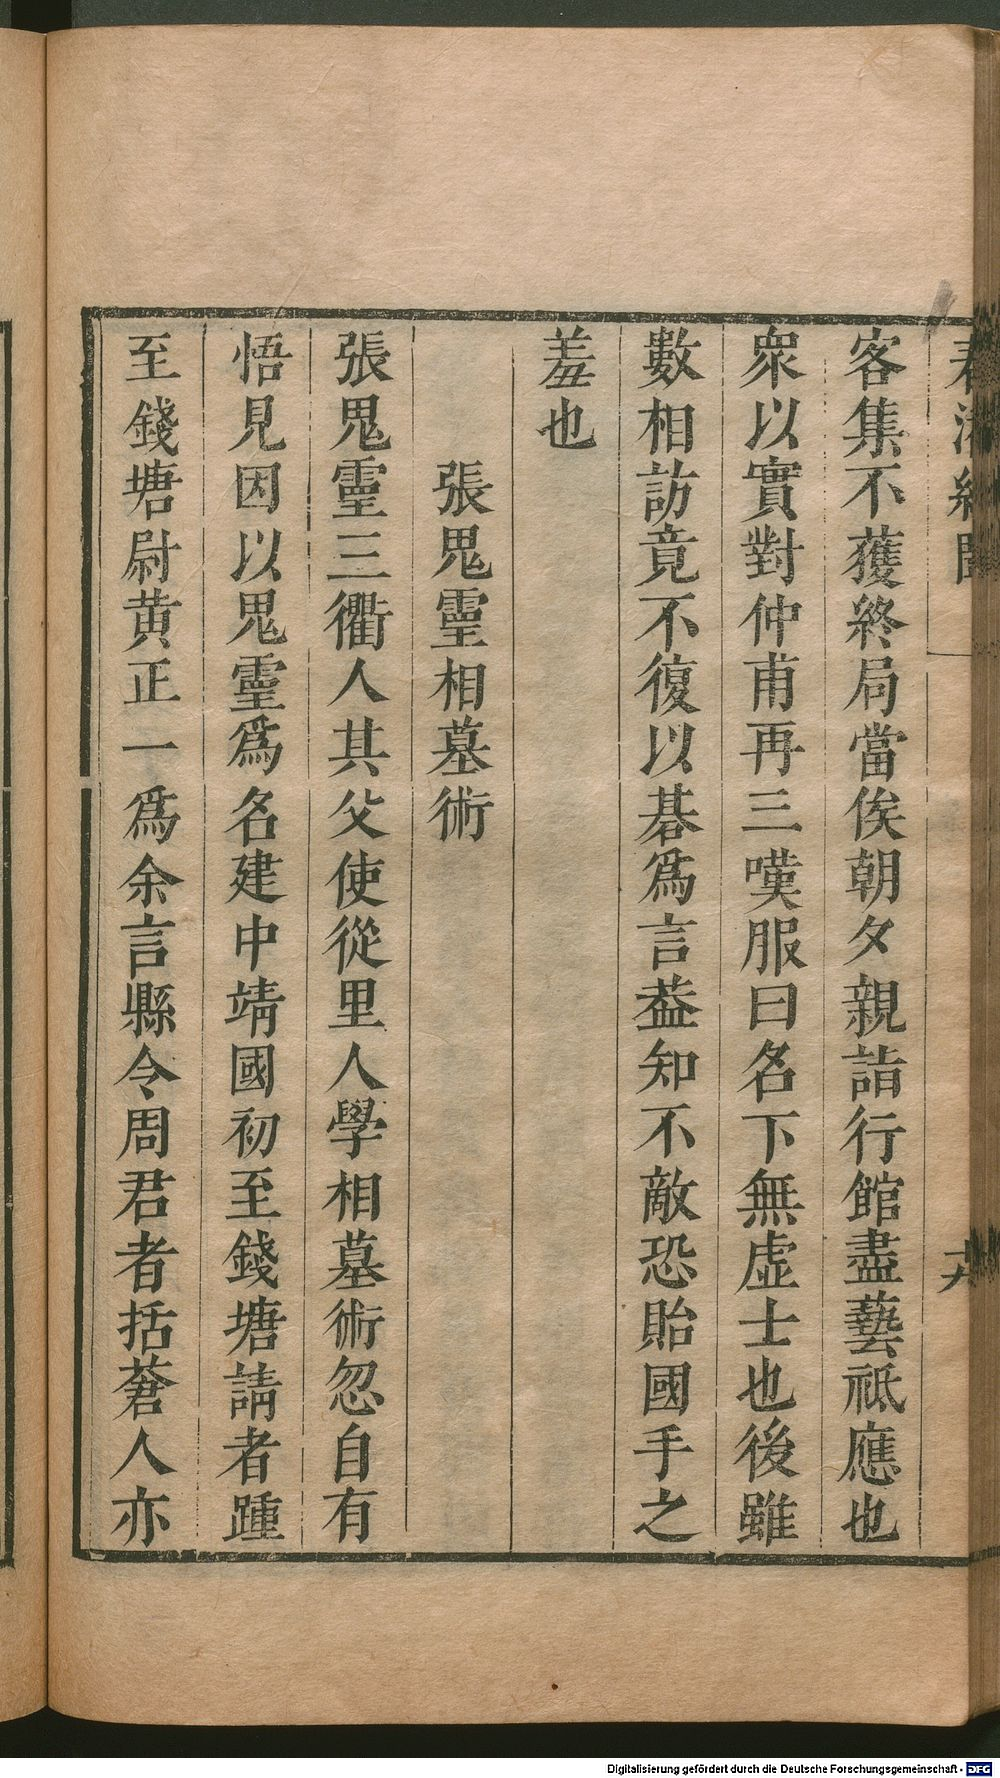 春渚紀聞
十六
客集不獲終局當俟朝夕親詣行館盡藝祗應也
衆以實對仲甫再三嘆服曰名下無虛士也後雖
數相訪竟不復以碁爲言葢知不敵恐貽國手之
羞也
張鬼靈相墓術
張鬼靈三衢人其父使從里人學相墓術忽自有
悟見因以鬼靈爲名建中靖國初至錢塘請者踵
至錢塘尉黄正一爲余言縣令周君者括蒼人亦
Digitalisierung gefördert durch die Deutsche Forschungsgemeinschaft - DFG